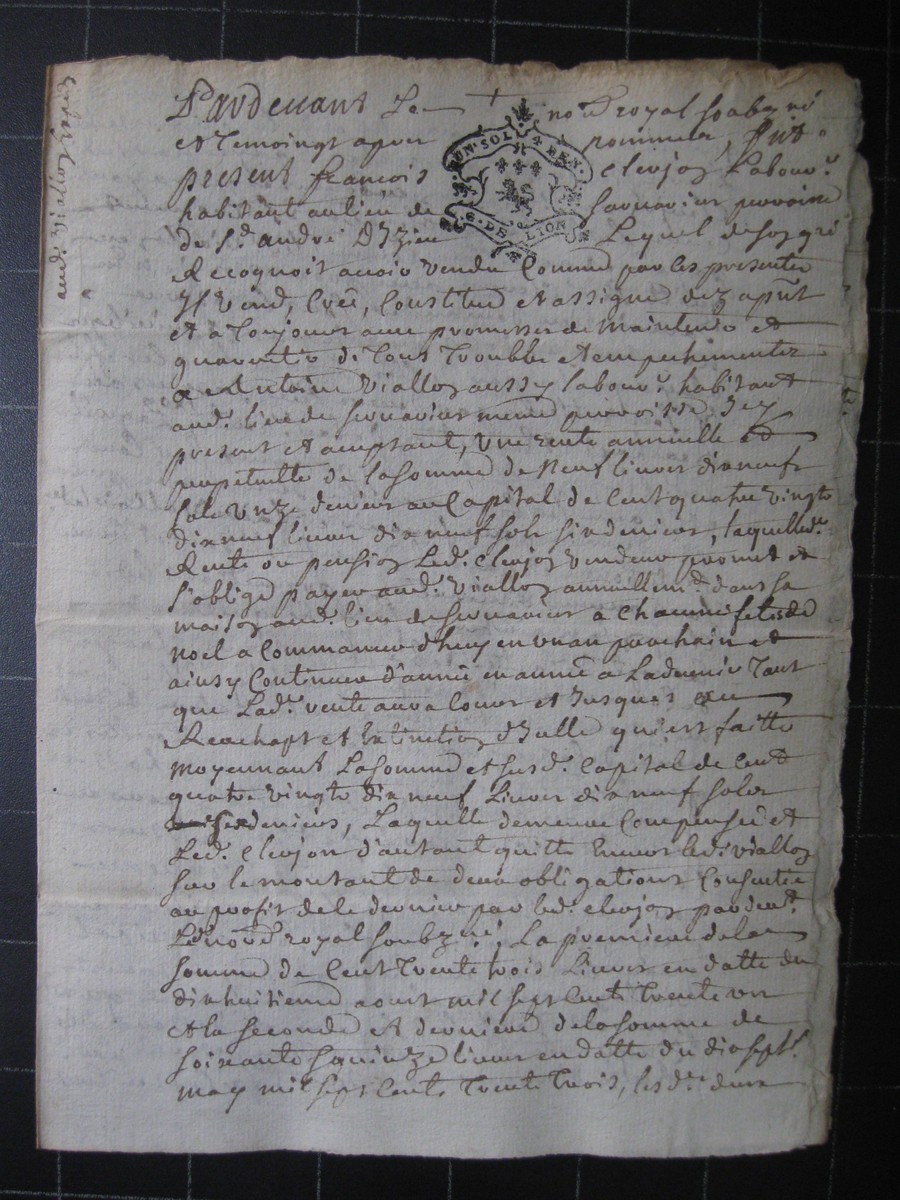 Pardevant Le no.re royal soubz.né
et temoings apres nommés, fut
present francois clerjon Labour.r
habitant au lieu de parroisse
de S.t andré D'Izieu Lequel de son gré
Recognoit avoir vendu Comme par les presentes
Il vend, Creé, Constitue et assigne dez apñt
et a toujours avec promesses de maintenir et
guarentir de tous troubles et empechements
a Antoine Vialloz aussy labour.r habitant
aud. lieu de mème parroisse Icy
present et aceptant, Une rente annuelle et
perpetuelle de la somme de Neuf livres dix neuf
sols unze deniers au Capital de Cent quatre vingts
dix neuf livres dix neuf sols six deniers, laquelle d.
Rente ou pension Led. clerjon vendeur promet et
s'oblige payer aud. Vialloz annuellem.t dans sa
maison aud. lieu de a Chacune feste de
noel a Commancer d'huy en un an prochain et
ainsy Continuer d'année en année a Ladvenir tant
que Lad. rente aura Cours et Jusques au
Reachapt et Extinction d'Icelle qui est faitte
moyennant La somme et susd. Capital de Cent
quatre vingts dix neuf Livres dix neuf sols
six deniers, Laquelle demeure Compensée et
Led. Clerjon d'autant quitte Envers led. vialloz
sur le montant de deux obligations Consenties
au profit de le dernier par led. clerjon pardev.t
Led. no.re royal soubz.né, La premiere de la
somme de Cent trente trois Livres en datte du
dixhuitieme aoust mil sept Cents trente un
et la seconde et derniere de la somme de
soixante livres en datte du dixsept.e
may mil sept Cents trente trois, lesd. deux
UN SOL 4 DEN.
G. DE LION